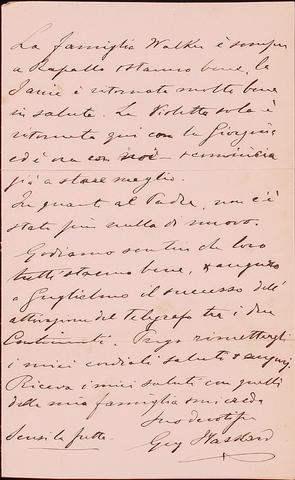 La famiglia Walker è sempre
a Rapallo e stanno bene, la
Janie è ritornata molto bene
in salute. La Violetta sola è
ritornata qui con la Giorgina
ed è ora con noi e comincia
già a stare meglio.
In quanto al Padre, non c'è
stato più nulla di nuovo.
Godiamo sentire che loro
tutti stanno bene, & auguro
a Guglielmo il successo dell'
attivazione del telegrafo tra i due
Continenti. Prego rimettergli
i miei cordiali saluti & auguri.
Riceva i miei saluti con quelli
della mia famiglia
Suo devotissº
Scusi la fretta.